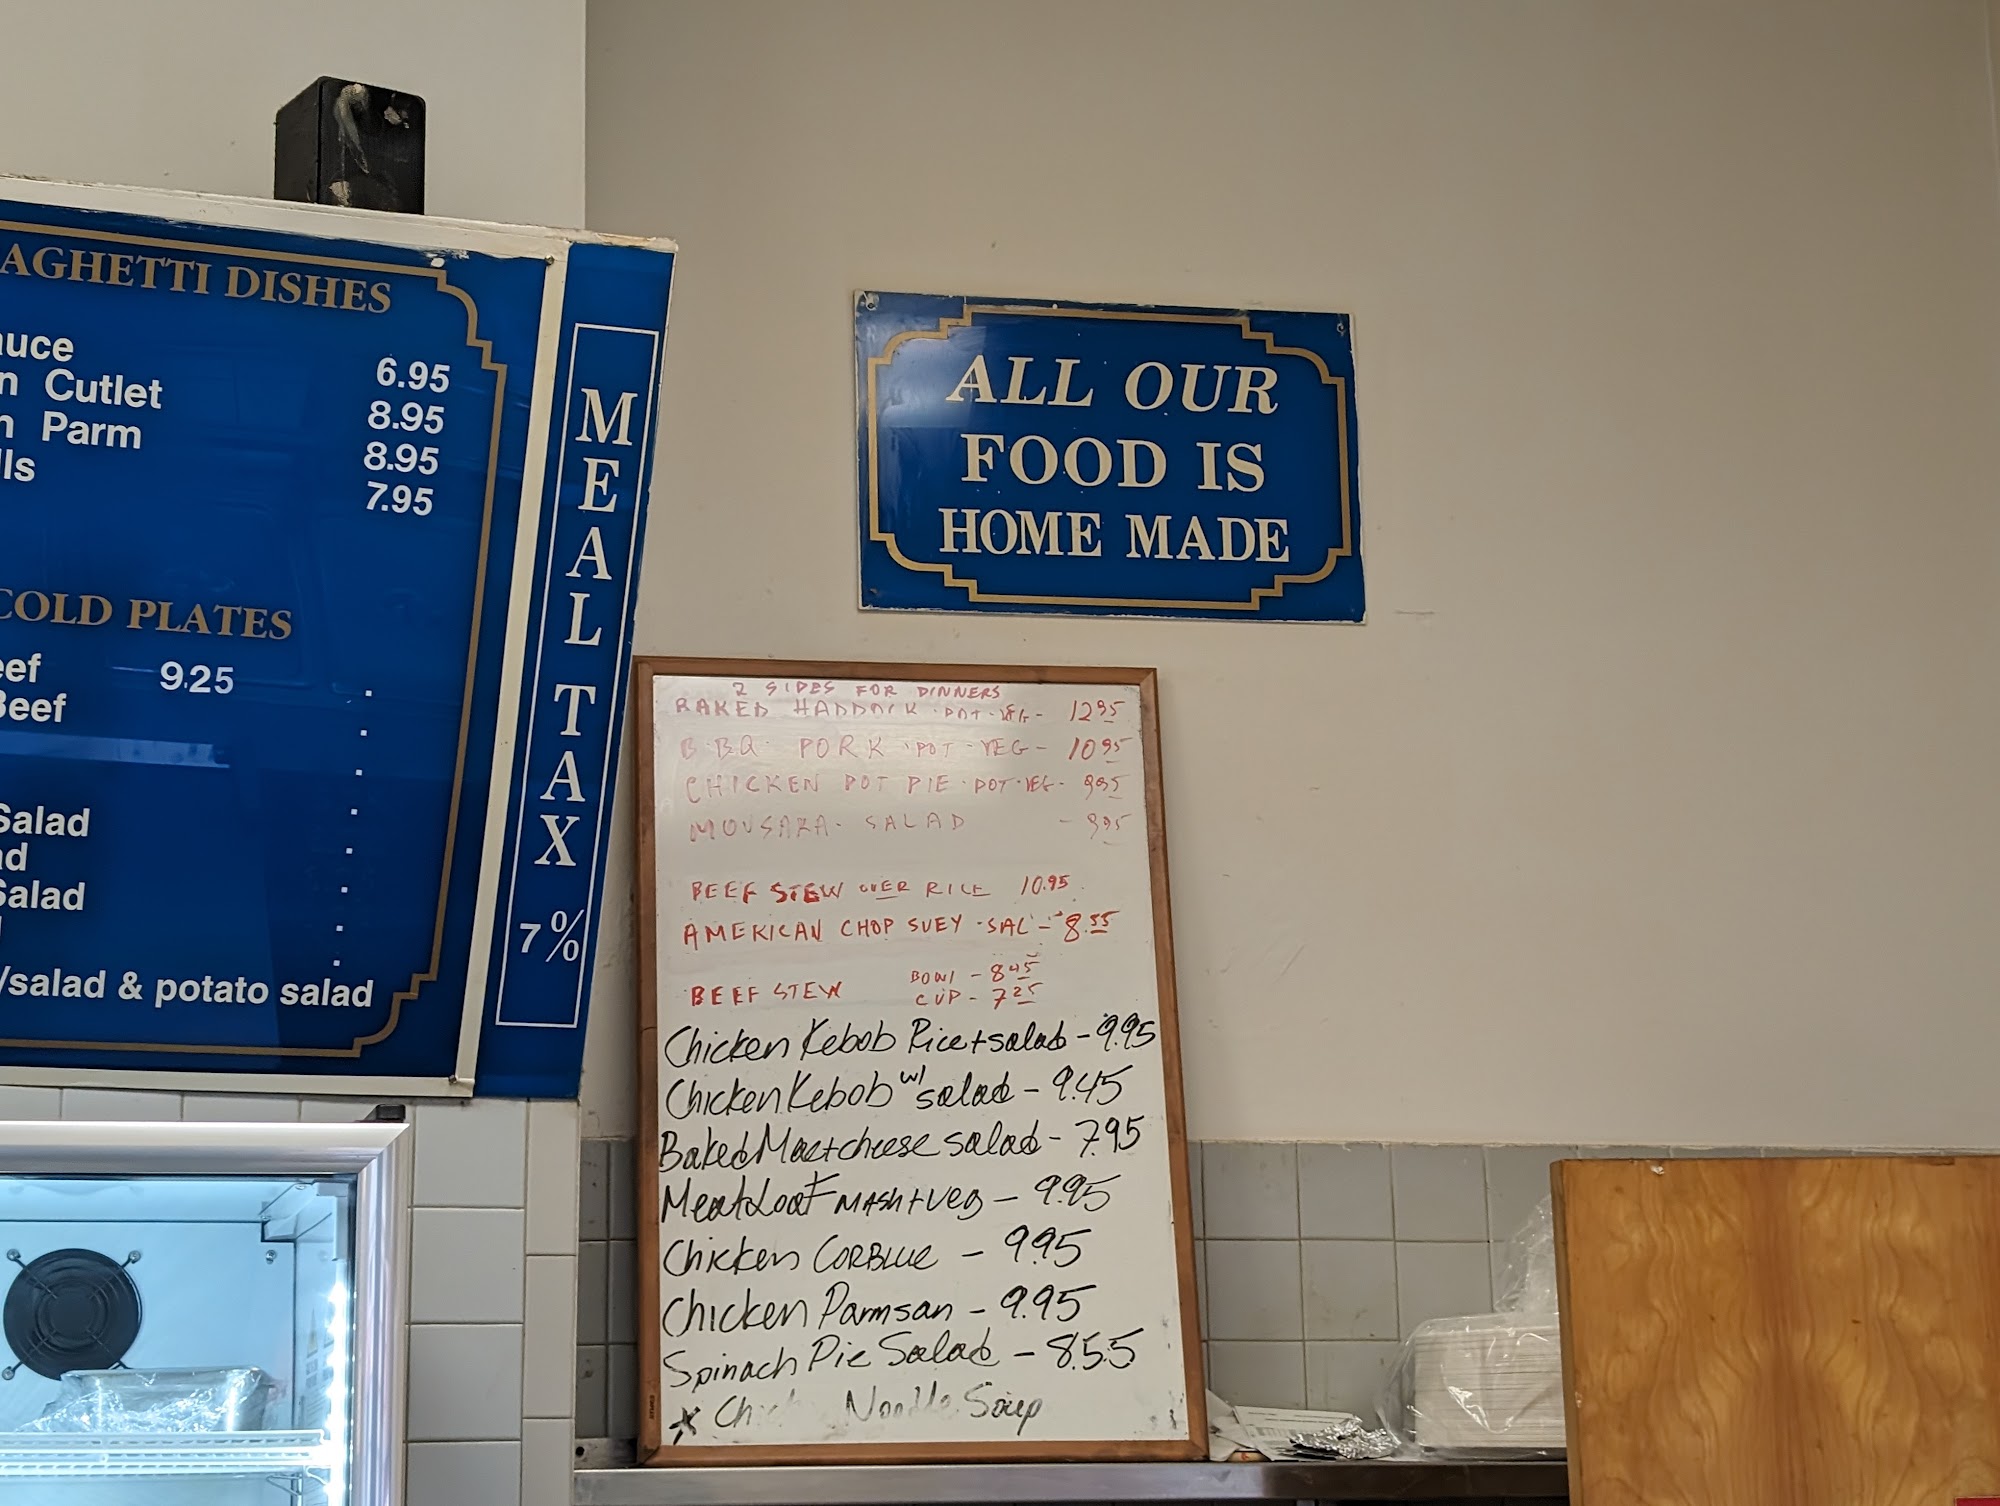 AGHETTI DISHES
auce 6.95
n Cutlet 8.95
n Parm 8.95
lls 7.95
COLD PLATES
eef 9.25
Beef
Salad
ad
Salad
/salad & potato salad
MEAL TAX 7%
ALL OUR
FOOD IS
HOME MADE
2 SIDES FOR DINNERS
BAKED HADDOCK · POT · VEG - 12.95
B·BQ· PORK · POT - VEG - 10.95
CHICKEN POT PIE · POT · VEG - 9.95
MOUSAKA - SALAD - 9.95
BEEF STEW OVER RICE 10.95
AMERICAN CHOP SUEY - SAL - 8.55
BEEF STEW BOWL - 8.45
CUP - 7.25
Chicken Kebob Rice + salad - 9.95
Chicken Kebob w/ salad - 9.45
Baked Mac + cheese salad - 7.95
Meat Loaf MASH + Veg - 9.95
Chicken CORBLUE - 9.95
Chicken Parmsan - 9.95
Spinach Pie Salad - 8.55
Noodle Soup